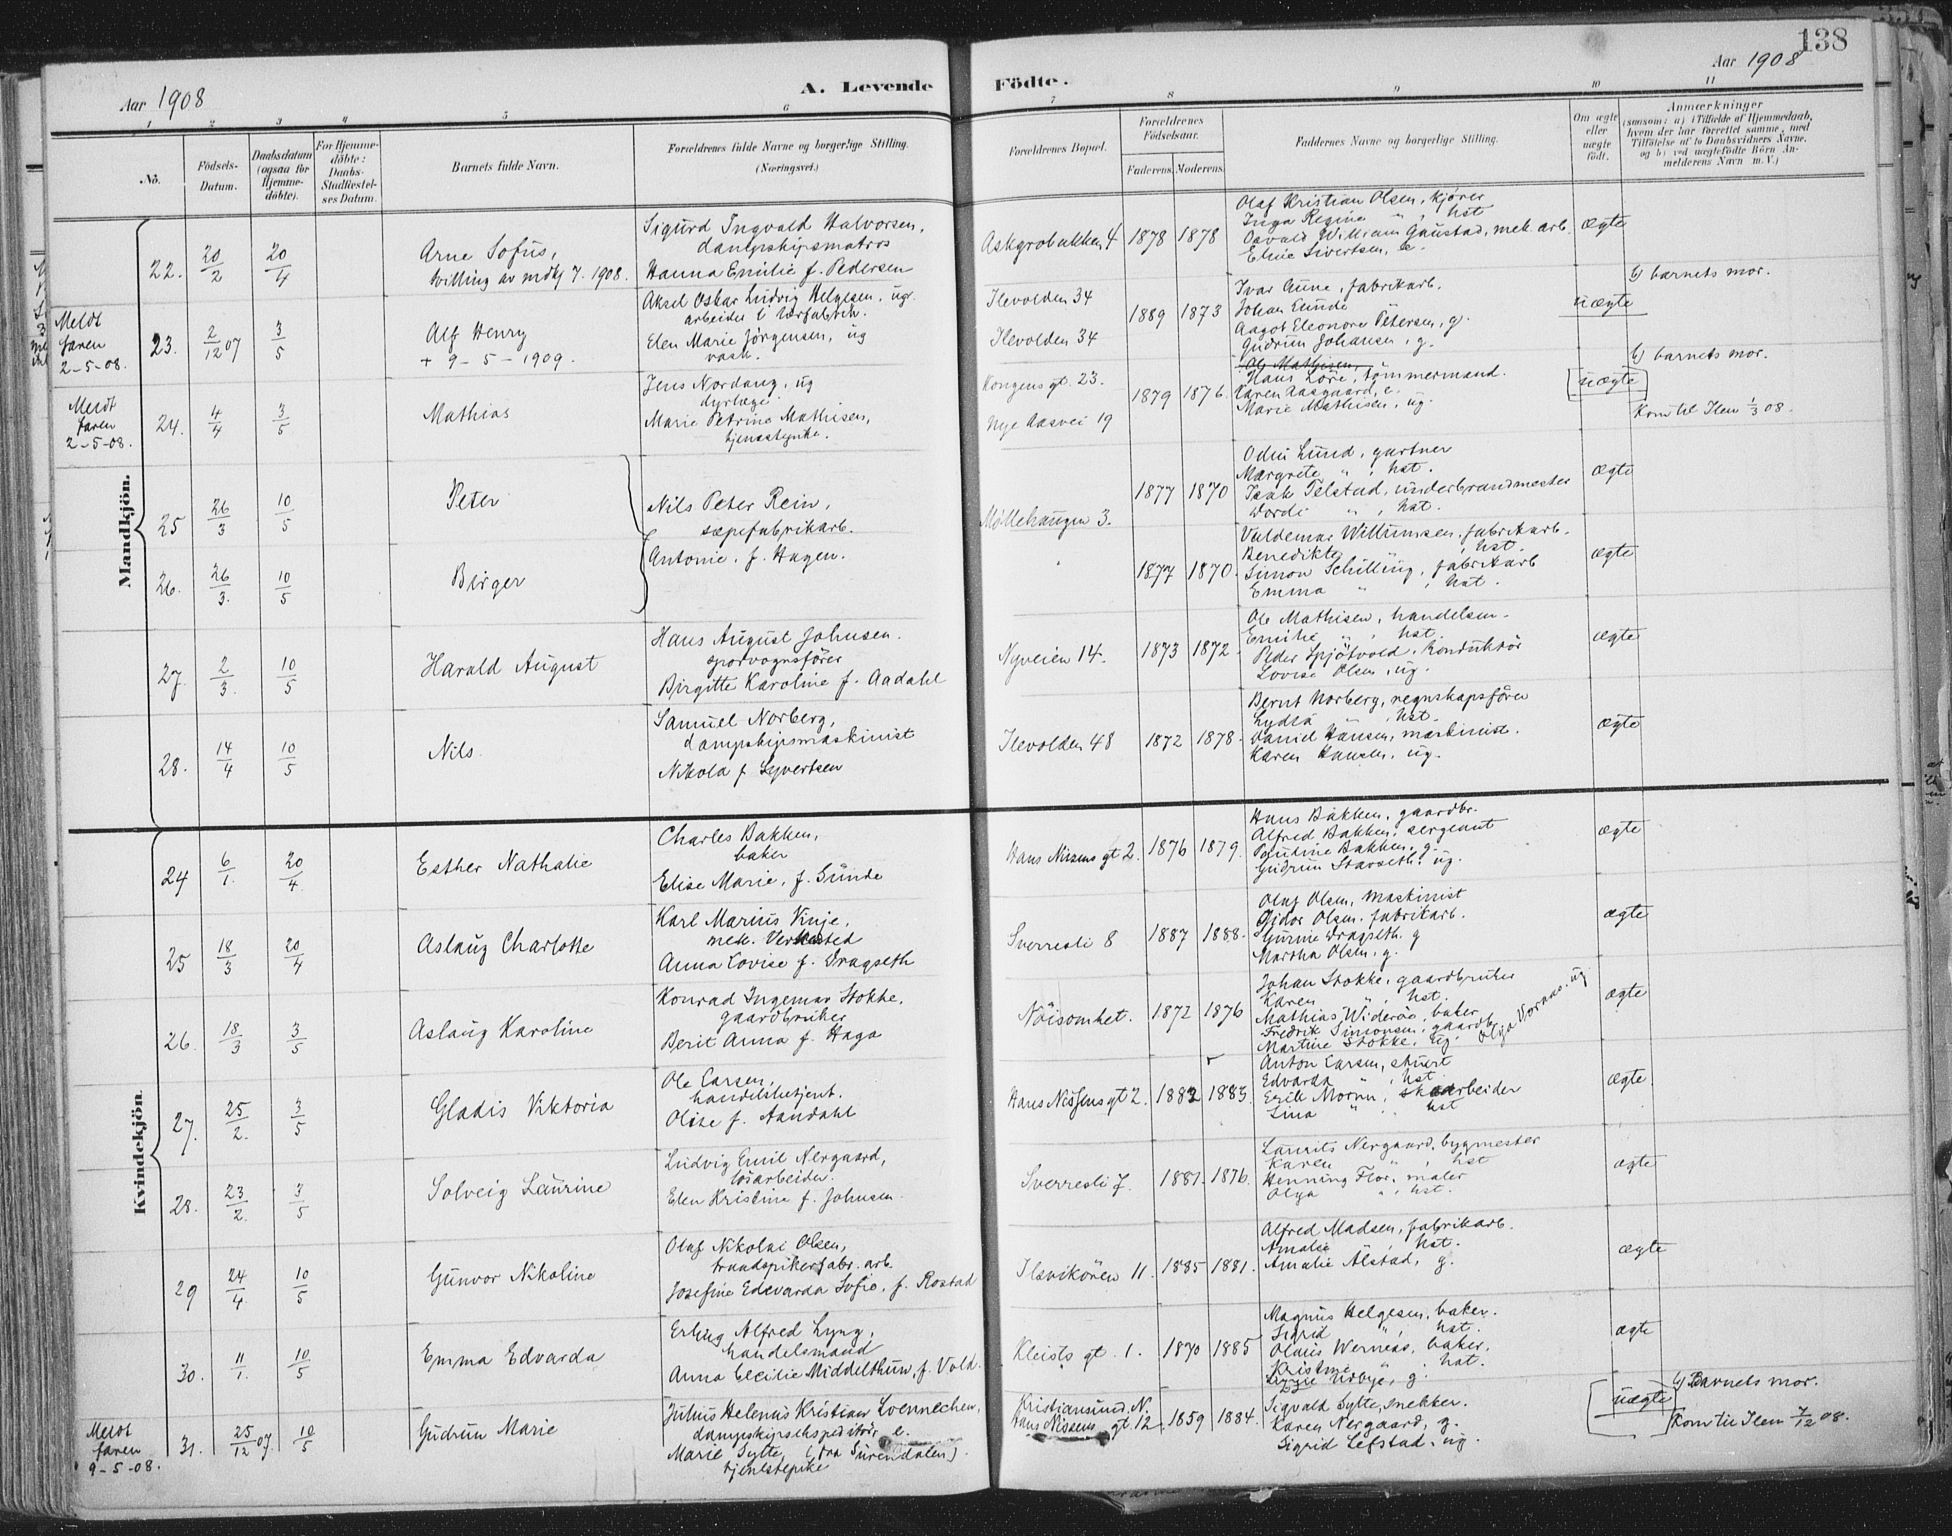 138
Aar 1908
A. Levende Födte.
Aar 1908
1 2 3 4 5 6 7 8 9 10 11
No.
Födsels-Datum.
Daabsdatum (ogsaa for Hjemmedöbte).
For Hjemmedöbte: Daabs-Stadfestelses Datum.
Barnets fulde Navn.
Forældrenes fulde Navne og borgerlige Stilling. (Næringsvei.)
Forældrenes Bopæl.
Forældrenes Födselsaar.
Faderens. Moderens.
Faddernes Navne og borgerlige Stilling.
Om ægte eller uægte födt.
Anmærkninger
(saasom: a) i Tilfælde af Hjemmedaab, hvem der har forrettet samme, med Tilföielse af to Daabsvidners Navne, og b) ved uægtefödte Börn Anmelderens Navn m. V.)
Mandkjön.
22. 20/2 20/4
Arne Sofus,
tvilling av mdkj 7. 1908.
Sigurd Ingvald Halvorsen,
dampskipsmatros
Hanna Emilie f. Pedersen
Askgrobakken 4 1878 1878
Olaf Kristian Olsen, kjører
Inga Regine " , hst
Osvald William Gaustad, mek. arb.
Eline Sivertsen, e.
ægte
Meldt faren 2-5-08.
23. 2/12 07 3/5
Alf Henry
+ 9-5-1909.
Aksel Oskar Ludvig Helgesen, ug.
arbeider i tørfabrik.
Elen Marie Jørgensen, ug
vask.
Ilevolden 34
Ilevolden 34
1889 1873
Ivar Aune, fabrikarb.
Johan Lunde
Aagot Eleonora Petersen, g.
Gudrun Johansen, g.
uægte
b) barnets mor.
Meldt faren 2-5-08.
24. 4/4 3/5
Mathias
Jens Nordang, ug
dyrlæge.
Marie Petrine Mathisen,
tjenestepike.
Kongens gt. 23.
Nye Aasvei 19
1879 1876.
Ole Mathisen,
Hans Löre, tömmermand.
Karen Aasgaard, e.
Marie Mathisen, ug.
[uægte]
b) barnets mor.
Kom til Ilen 1/3 08.
25 26/3 10/5
Peter
Nils Peter Rein,
sæpefabrikarb.
Antonie, f. Hagen.
Møllehaugen 3.
1877 1870
Odin Lund, gartner
Margrete " , hst.
Isak Telstad, underbrandmester
Dordi " , hst.
ægte
26. 26/3. 10/5
Birger
1877 1870.
Valdemar Willumsen, fabrikarb.
Benedikte " , hst.
Simon Schilling, fabrikarb
Emma " , hst.
ægte
27. 2/3. 10/5
Harald August
Hans August Johnsen.
sporvognsfører
Birgitte Karoline f. Aadahl
Nyveien 14. 1873 1872.
Ole Mathisen, handelsm.
Emilie " , hst.
Peder Spjötvold, konduktör
Lovise Olsen, ug.
ægte
28. 14/4 10/5
Nils
Samuel Norberg,
dampskipsmaskinist
Nikola f Syvertsen
Ilevolden 48 1872 1878.
Bernt Norberg, regnskapsfører
Lydia " , hst.
Daniel Hansen, maskinist.
Karen Hansen, ug.
ægte
Kvindekjön.
24 6/1. 20/4.
Esther Nathalie
Charles Bakken,
baker
Elise Marie, f. Sunde
Hans Nissens gt 2. 1876 1879.
Hans Bakken, gaardbr.
Alfred Bakken, sergeant
Pauline Bakken, g.
Gudrun Stavseth, ug.
ægte
25 18/3 20/4
Aslaug Charlotte
Karl Marius Vinje,
mek. Verksted
Anna Lovise f. Dragseth
Sverresli 8 1887 1888.
Olaf Olsen, maskinist
Gidor Olsen, fabrikarb.
Gurine Dragseth. g
Martha Olsen, g.
ægte
26. 18/3 3/5
Aslaug Karoline
Konrad Ingemar Stokke,
gaardbruker
Berit Anna f. Haga
Nöisomhet. 1872 1876
Johan Stokke, gaardbruker
Karen " , hst.
Mathias Wideröe, baker
Fredrik Simonsen, gaardb.
Martine Stokke, ug. Olga Vornæs. ug
ægte
27. 25/2. 3/5
Gladis Viktoria
Ole Larsen,
handelsbetjent.
Olise f. Aandahl
Hans Nissens gt 2. 1882 1883.
Anton Larsen, stuert
Edvarda " , hst.
Erik Morin, skoarbeider
Lina " , hst
ægte
28. 23/2. 3/5
Solveig Laurine
Ludvig Emil Nergaard,
løsarbeider.
Elen Kristine f. Johnsen.
Sverresli 7. 1881. 1876.
Laurits Nergaard, bygmester
Karen " , hst
Henning Flor, maler
Olga " , hst.
ægte
29 24/4. 10/5
Gunvor Nikoline
Olaf Nikolai Olsen,
traadspikerfabr. arb.
Josefine Edevarda Sofie, f. Rostad
Ilsvikören 11. 1885 1881.
Alfred Madsen, fabrikarb.
Amalie , hst.
Amalie Alstad, g.
ægte
30. 11/1. 10/5
Emma Edvarda
Erling Alfred Lyng,
handelsmand
Anna Cecilie Middelthun, f. Vold.
Kleists gt. 1. 1870 1885
Magnus Helgesen, baker.
Sigrid " , hst.
Olaus Wernes, baker.
Kristine " , hst.
Lizzie Udbye, g.
ægte
Meldt faren 9-5-08.
31. 25/12 07. 10/5
Gudrun Marie
Julius Helenus Kristian Loennechen,
dampskipsekspeditör, e.
Marie Sylte, (fra Surendalen).
tjenestepike
Kristiansund. N.
Hans Nissens gt 12
1859 1884.
Sigvald Sylte, snekker.
Karen Nergaard, g.
Sigrid Lefstad, ug.
[uægte]
b) Barnets mor.
Kom til Ilen 7/12 08.